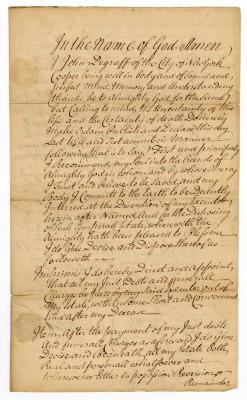 In the Name of God Amen
I John Degraff of the City of New York
Cooper being well in body and of Sound and
perfect Mind Memory and Understanding
thanks be to Almighty God for the same
but calling to mind the Uncertainty of this
life and the Certainty of death Do hereby
Make Ordain Publish and Declare this my
Last Will and Testament in Manner
following that is to Say First and principally
I Recommend my Soul into the hands of
Almighty God in whom and by whose Mercy
I trust and believe to be Saved, and my
body I Committ to the Earth to be Decently
Interred at the Discretion of my Executors
herein after Named And for the Disposing
of such temporal Estate, wherewith the
Almighty hath been pleased to bless me
I do give Devise and Dispose thereof as
followeth
Imprimis I do hereby Direct and appoint,
that all my Just Debts and funerall
Charges be paid by my Executors out of
my Estate, with Some Short and Convenient
time after my Decease
Item After the payment of my Just debts
and funerall Charges as aforesaid I do Give
Devise and Bequeath all my Estate Both
Real and personall whatsoever and
wheresoever Either in possession, Reversion or
Remainder